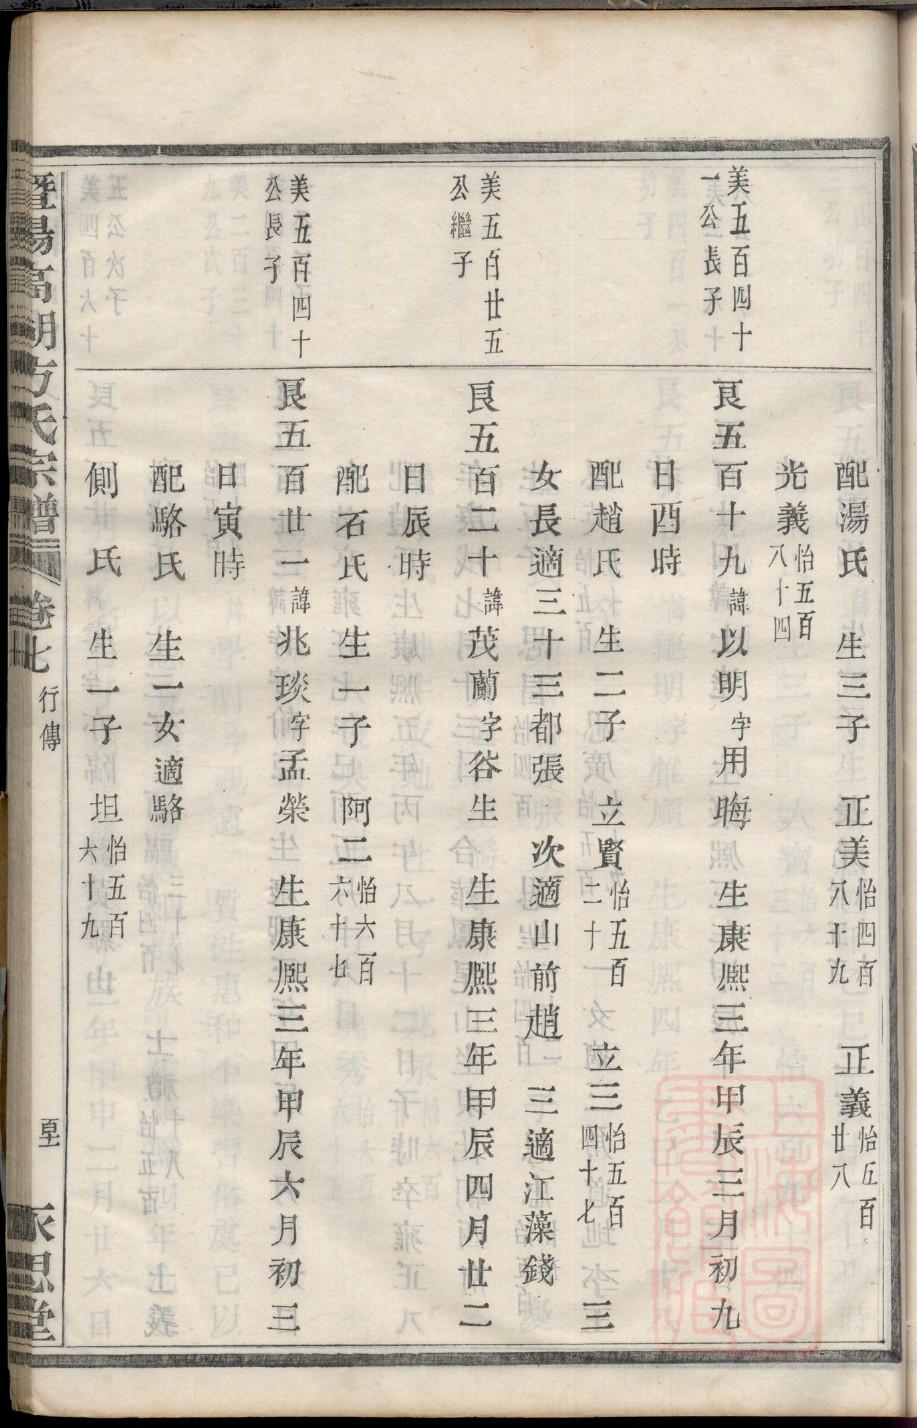 配湯氏　生三子　正美怡四百八十九　正義怡五百廿八
光義怡五百八十四
美五百四十一公長子
良五百十九諱以明字用晦　生康熙三年甲辰三月初九
日酉時
配趙氏　生二子　立賢怡五百二十　立三怡五百四十七　三
女長適三十三都張　次適山前趙　三適江藻錢
美五百廿五公繼子
良五百二十諱茂蘭字谷生　生康熙三年甲辰四月廿二
日辰時
配石氏　生一子　阿二怡六百六十七
美五百四十公長子
良五百廿一諱兆琰字孟榮　生康熙三年甲辰六月初三
日寅時
配駱氏　生一女適駱
側　氏　生一子　坦怡五百六十九
暨陽高湖方氏宗譜　卷七　行傳　永思堂